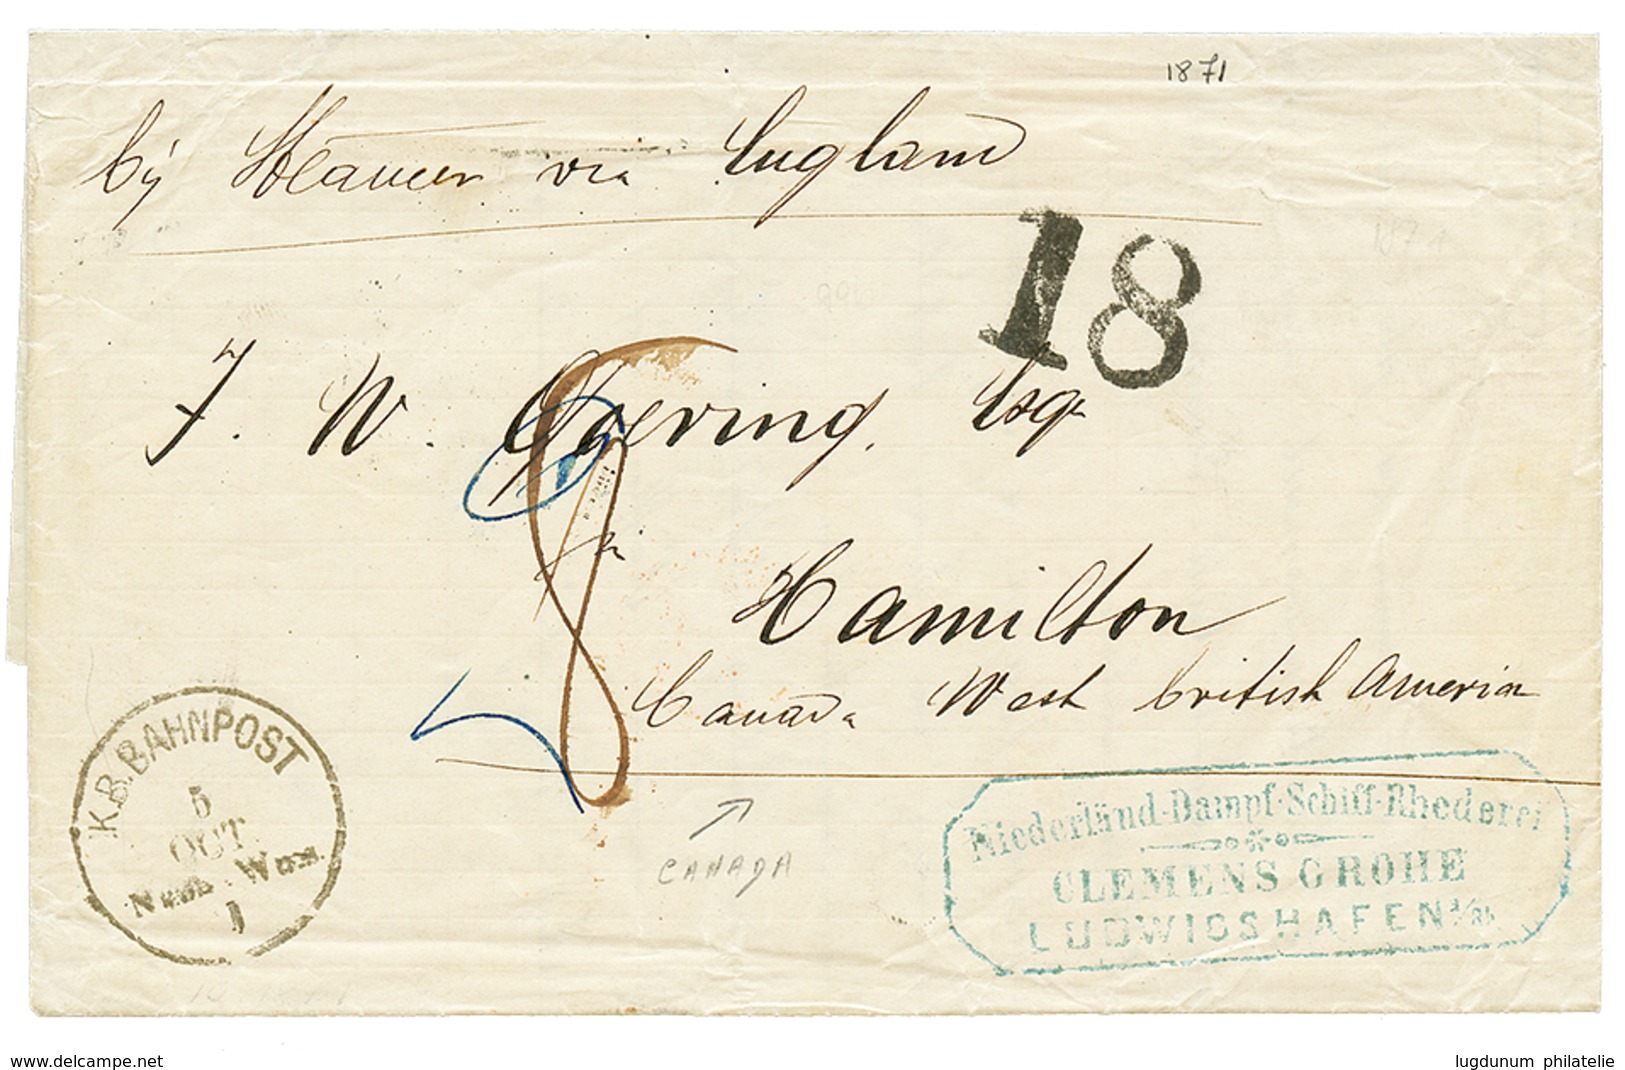 1871
by Steamer via England
18
1871
J. W. Goering, Esqr
8
Hamilton
Canada West british America
CANADA
K.B.BAHNPOST
5
OCT
1
Niederländ-Dampf-Schiff-Rhederei
CLEMENS GROHE
LUDWIGSHAFEN a/Rh.
www.delcampe.net
lugdunum philatelie